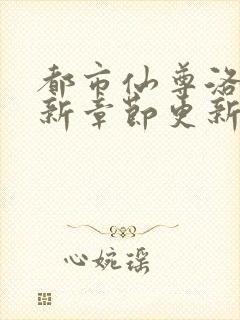 都市仙尊洛
新章节更新
心婉瑶